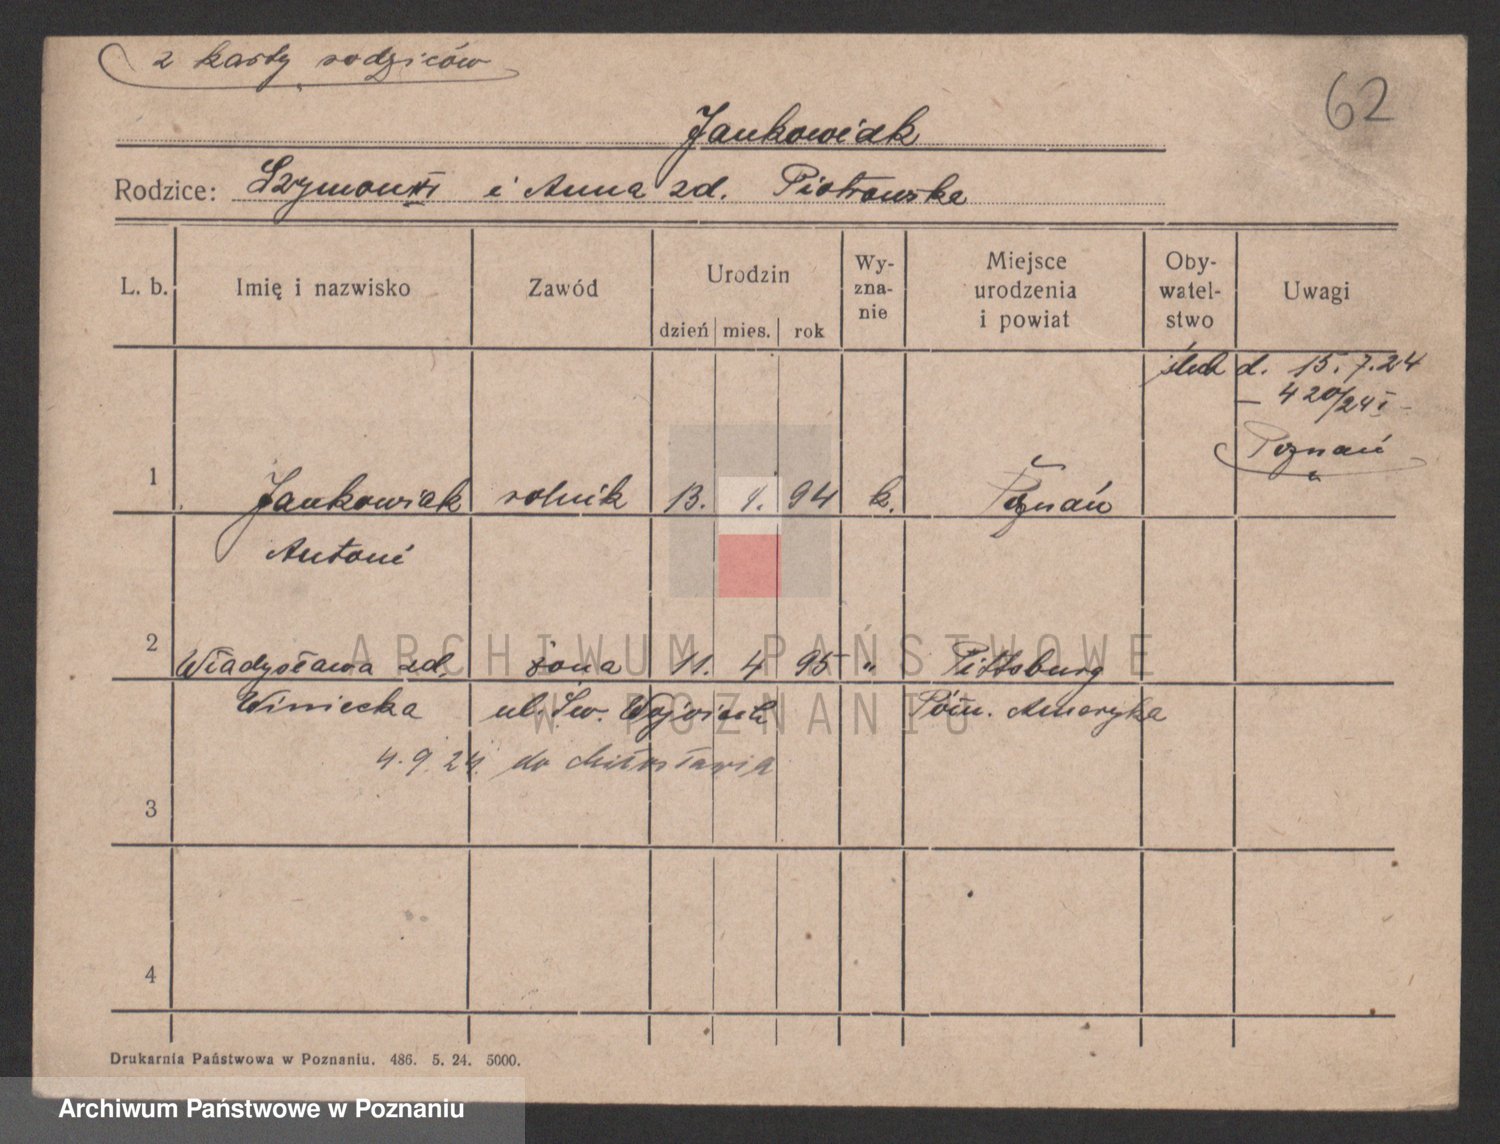 z karty rodziców
62
Jankowiak
Rodzice: Szymon i Anna zd. Piotrowska
L. b. Imię i nazwisko Zawód Urodzin dzień mies. rok Wy-zna-nie Miejsce urodzenia i powiat Oby-watel-stwo Uwagi
ślub d. 15.7.24
420/24 I
Poznań
1 Jankowiak rolnik 13. 94 k. Poznań
Antoni
2 Władysława zd. żona 11. 4 95 " Pittsburg
Winiecka ul. Św. Wojciech Półn. Ameryka
4.9.24. do Miłosławia
3
4
Drukarnia Państwowa w Poznaniu. 486. 5. 24. 5000.
ARCHIWUM PAŃSTWOWE
W POZNANIU
Archiwum Państwowe w Poznaniu